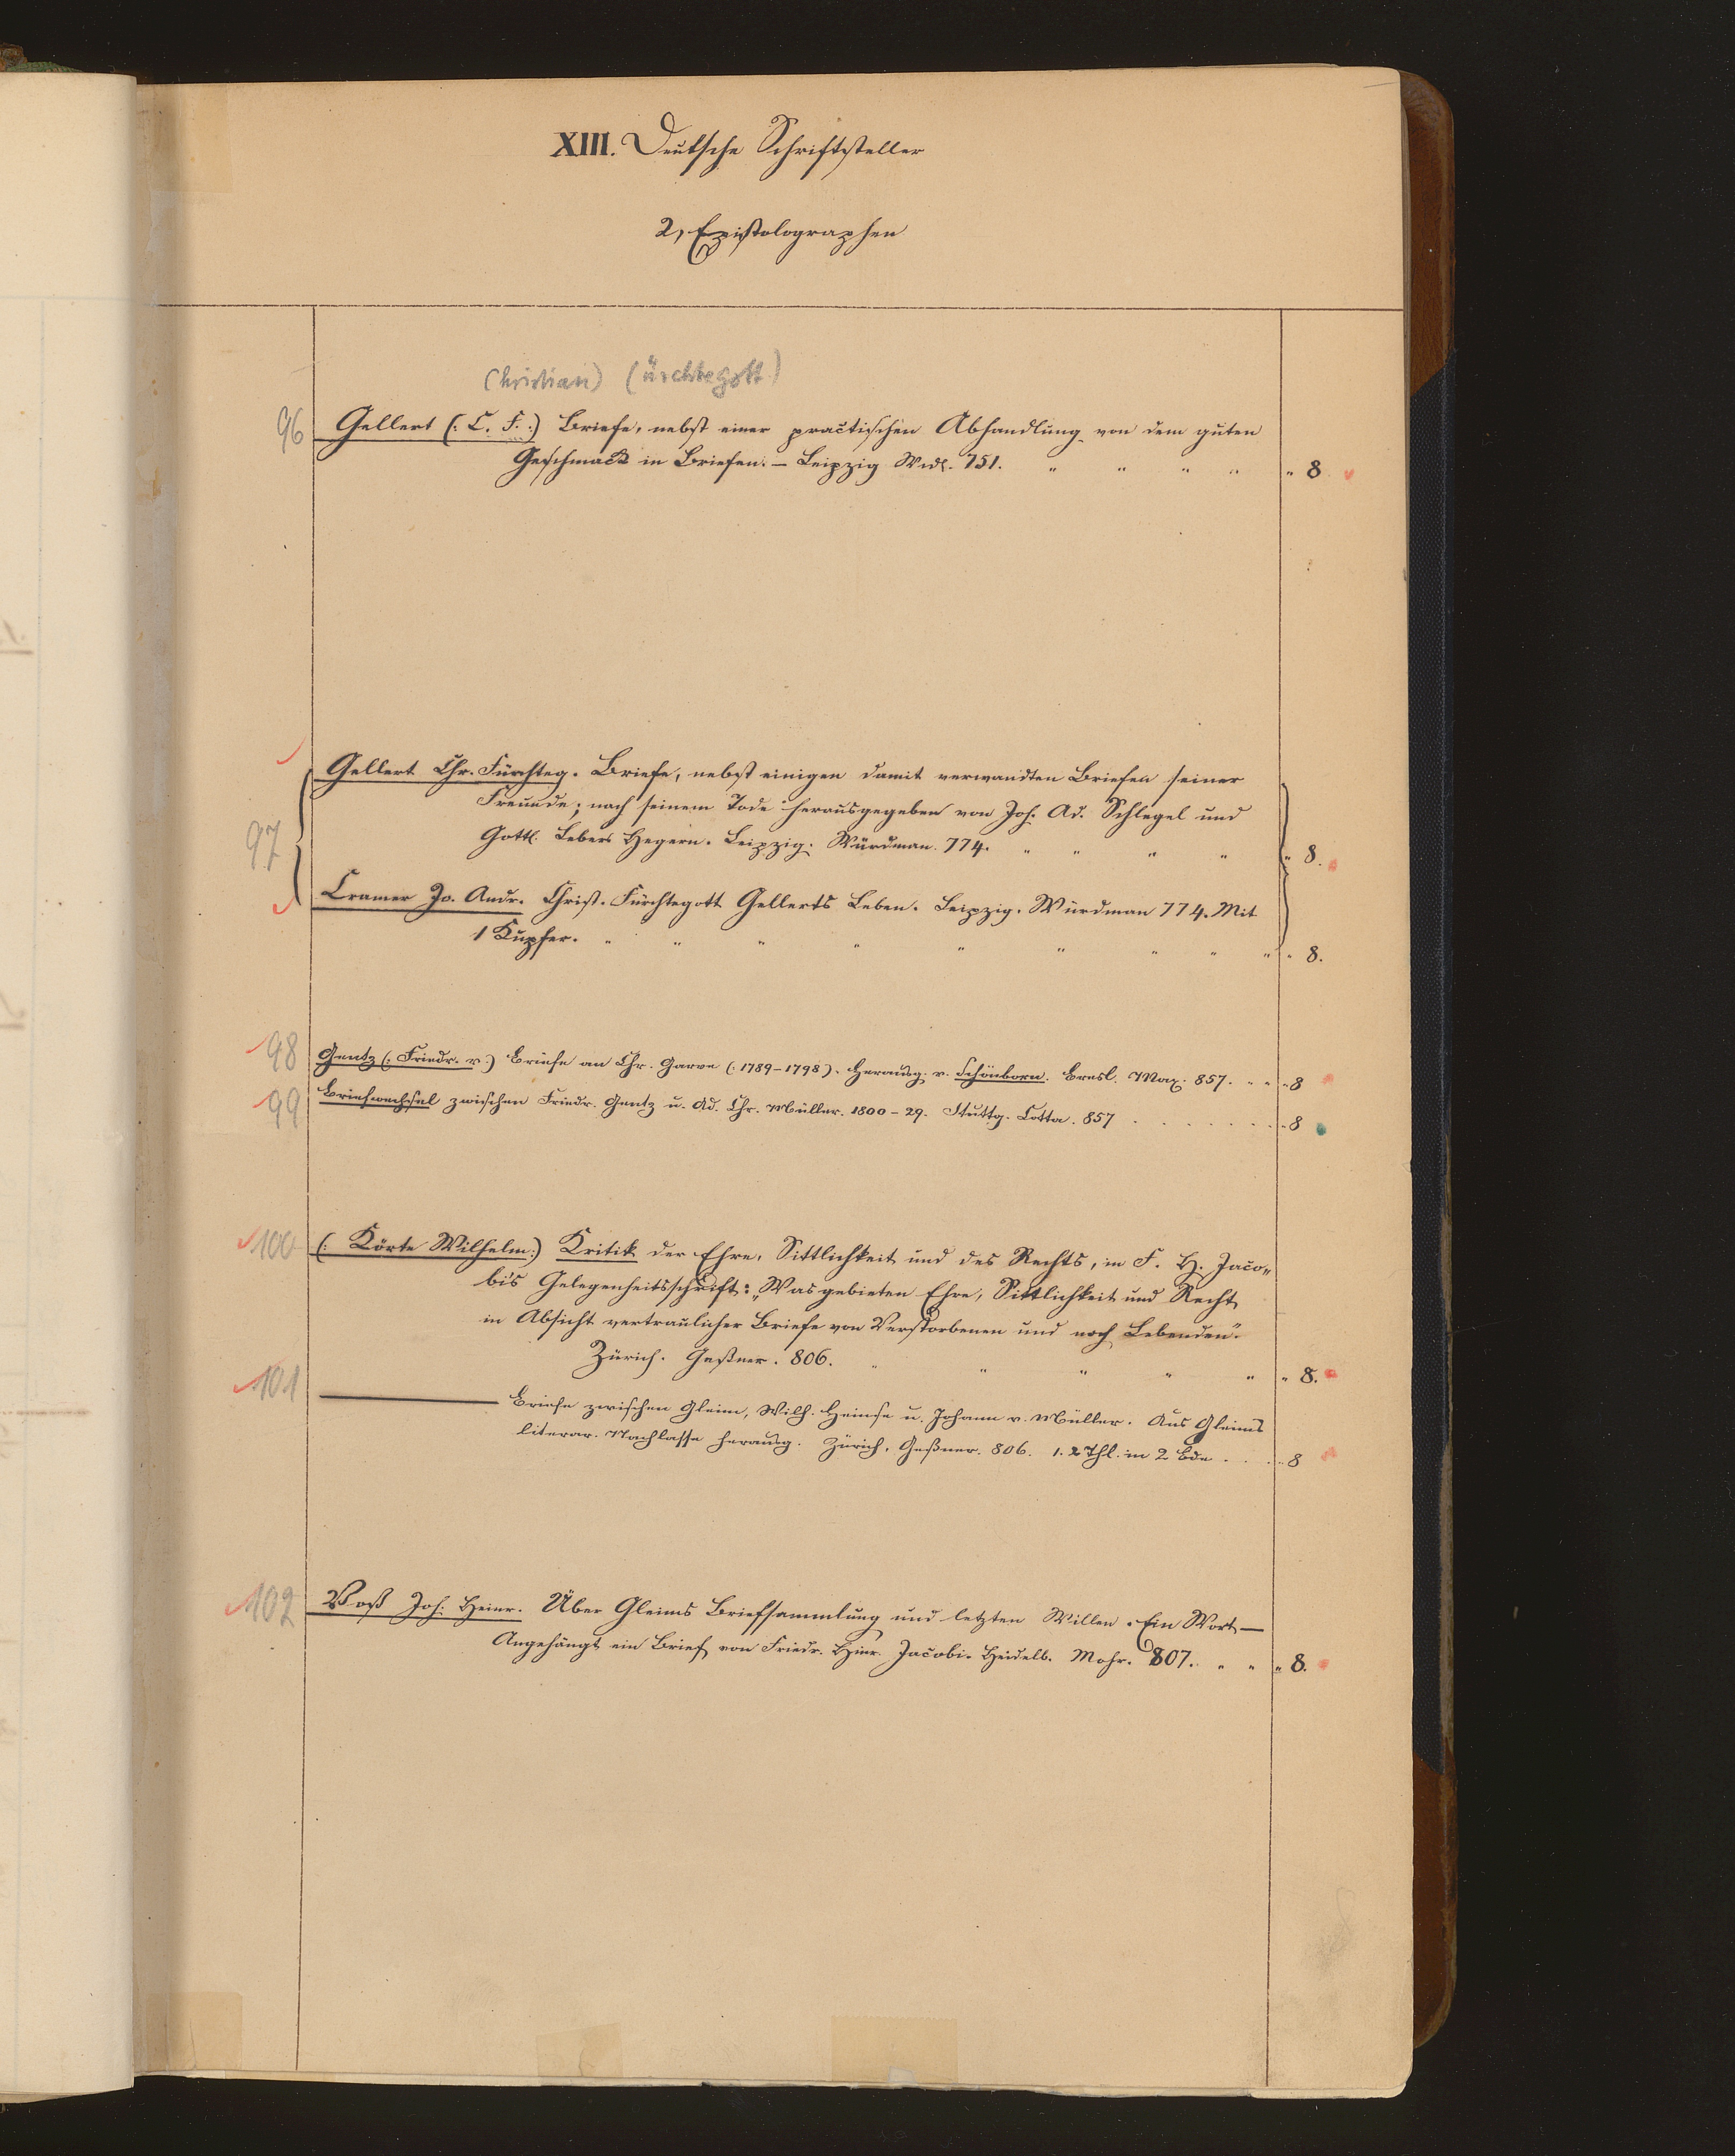 XIII. Deutsche Schriftsteller
2, Epistolographen
Christian) (ürchtegott)
96 Gellert (: C. F. :) Briefe, nebst einer practischen Abhandlung von dem guten
Geschmack in Briefen. – Leipzig Wdl. 751. " " " " " 8
Gellert Chr. Fürchteg. Briefe, nebst einigen damit verwandten Briefen seiner
Freunde; nach seinem Tode herausgegeben von Joh. Ad. Schlegel und
97 Gottl. Lebers Hegern. Leipzig. Weidman. 774. " " " " " 8.
Cramer Jo. Andr. Christ. Fürchtegott Gellerts Leben. Leipzig. Weidman 774. Mit
1 Kupfer. " " " " " " " " " " 8.
98 Gentz (: Friedr. v :) Briefe an Chr. Garve (: 1789–1798). Herausg. v. Schönborn. Bresl. Max. 857. " " " 8
99 Briefwechsel zwischen Friedr. Gentz u. Ad. Chr. Müller. 1800–29. Stuttg. Cotta. 857 . . . . . . . . 8
100 (: Körte Wilhelm :) Kritik der Ehre, Sittlichkeit und des Rechts, in F. H. Jaco„
bi's Gelegenheitsschrift: „Was gebieten Ehre, Sittlichkeit und Recht
in Absicht vertraulicher Briefe von Verstorbenen und noch Lebenden“.
Zürich. Geßner. 806. " " " " " " 8.
101 ——— Briefe zwischen Gleim, Wilh. Heinse u. Johann v. Müller. Aus Gleims
literar. Nachlasse herausg. Zürich, Geßner. 806. 1. 2 Thl. in 2 Bde . . . . 8
102 Voß Joh. Heinr. Über Gleims Briefsammlung und letzten Willen. Ein Wort —
Angehängt ein Brief von Friedr. Hinr. Jacobi. Heidelb. Mohr. 807. " " " 8.